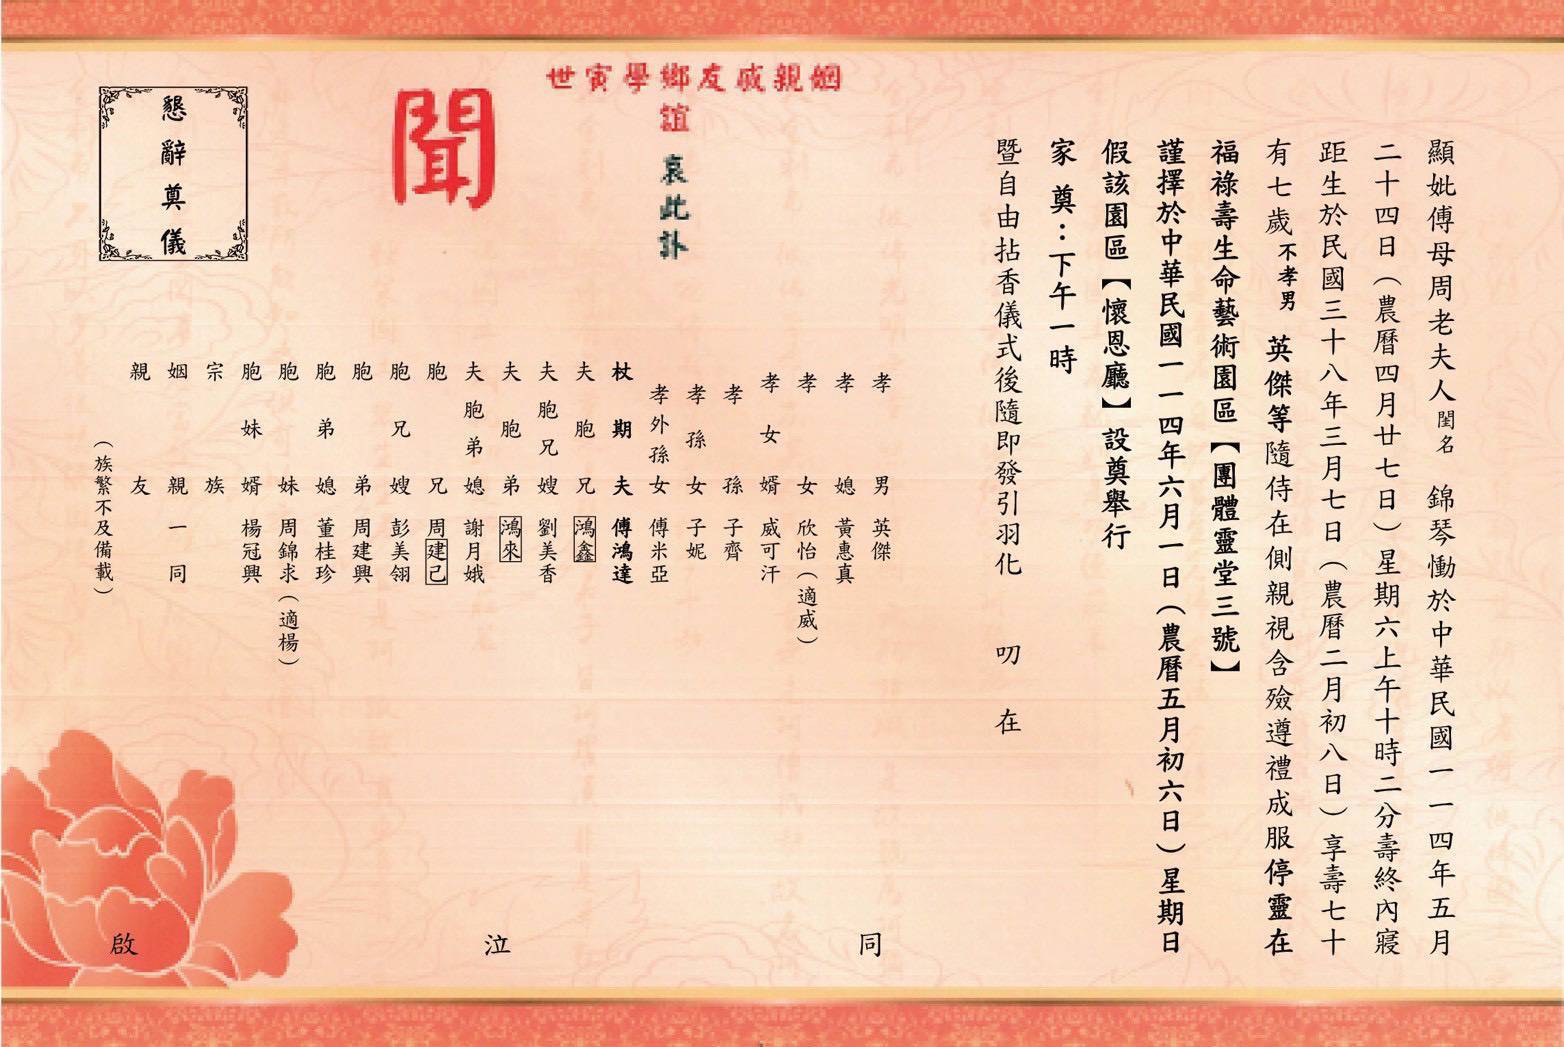 顯妣傅母周老夫人閨名 錦琴慟於中華民國一一四年五月
二十四日（農曆四月廿七日）星期六上午十時二分壽終內寢
距生於民國三十八年三月七日（農曆二月初八日）享壽七十
有七歲不孝男 英傑等隨侍在側親視含殮遵禮成服停靈在
福祿壽生命藝術園區【團體靈堂三號】
謹擇於中華民國一一四年六月一日（農曆五月初六日）星期日
假該園區【懷恩廳】設奠舉行
家 奠：下午一時
暨自由拈香儀式後隨即發引羽化 叨 在
姻親戚友鄉學寅世
誼 哀此訃
聞
孝男 英傑
孝媳 黃惠真
孝女 欣怡（適威）
孝女婿 威可汗
孝孫 子齊
孝孫女 子妮
孝外孫女 傅米亞
杖期夫 傅鴻達
夫胞兄 鴻鑫
夫胞兄嫂 劉美香
夫胞弟 鴻來
夫胞弟媳 謝月娥
胞兄 周建己
胞兄嫂 彭美翎
胞弟 周建興
胞弟媳 董桂珍
胞妹 周錦求（適楊）
胞妹婿 楊冠興
宗族
姻親一同
親友
（族繁不及備載）
同 泣 啟
懇辭奠儀